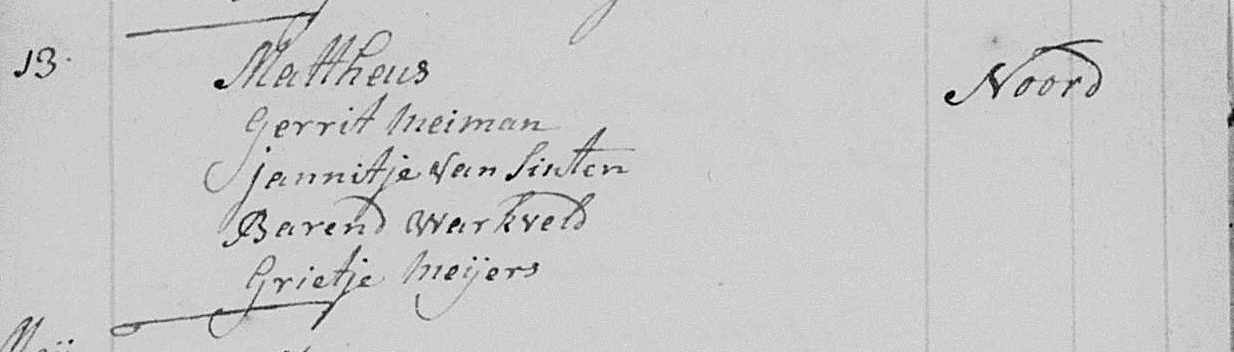 13. Mattheus Noord
Gerrit Meiman
jannitje van Sinten
Barend Warkveld
Grietje Meijers
Meij